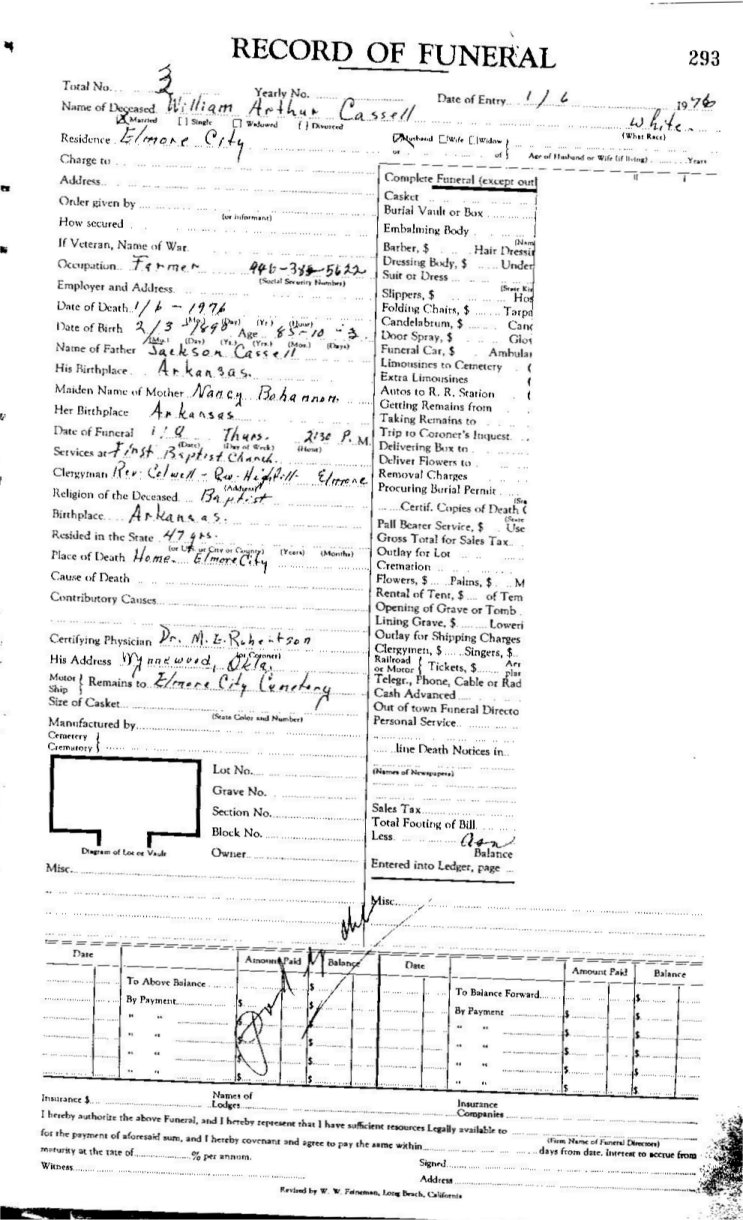 RECORD OF FUNERAL 293
Total No. 3 Yearly No. Date of Entry 1/6 1976
Name of Deceased William Arthur Cassell white
[X] Married [ ] Single [ ] Widowed [ ] Divorced (What Race)
Residence Elmore City [X] Husband [ ] Wife [ ] Widow
or of Age of Husband or Wife (if living) Years
Charge to
Address
Order given by
(or informant)
How secured
If Veteran, Name of War
Occupation Farmer 5622
(Social Security Number)
Employer and Address
Date of Death 1/6 - 1976
(Mo.) (Day) (Yr.) (Hour)
Date of Birth 2/3 - 1890 Age 85-10-3
(Mo.) (Day) (Yr.) (Yrs.) (Mos.) (Days)
Name of Father Jackson Cassell
His Birthplace Arkansas.
Maiden Name of Mother Nancy Bohannon.
Her Birthplace Arkansas
Date of Funeral Thurs. 2:30 P. M.
(Date) (Day of Week) (Hour)
Services at First Baptist Church
Clergyman Rev. Colwell - Rev. Elmore
(Address)
Religion of the Deceased Baptist
Birthplace Arkansas.
Resided in the State 47 yrs.
(or U.S. or City or County) (Years) (Months)
Place of Death Home. Elmore City
Cause of Death
Contributory Causes
Certifying Physician Dr. M. E. Robertson
(or Coroner)
His Address Wynnewood, Okla.
Motor
Ship } Remains to Elmore City Cemetery
Size of Casket
(State Color and Number)
Manufactured by
Cemetery
Crematory }
Lot No.
Grave No.
Section No.
Block No.
Diagram of Lot or Vault Owner
Misc.
Complete Funeral (except out
Casket
Burial Vault or Box
Embalming Body
(Nam
Barber, $ Hair Dressin
Dressing Body, $ Under
Suit or Dress
(State Kin
Slippers, $ Hos
Folding Chairs, $ Tarpa
Candelabrum, $ Canc
Door Spray, $ Glov
Funeral Car, $ Ambular
Limousines to Cemetery (
Extra Limousines (
Autos to R. R. Station (
Getting Remains from
Taking Remains to
Trip to Coroner's Inquest
Delivering Box to
Deliver Flowers to
Removal Charges
Procuring Burial Permit
Certif. Copies of Death C
(State
Pall Bearer Service, $ Use
Gross Total for Sales Tax
Outlay for Lot
Cremation
Flowers, $ Palms, $ M
Rental of Tent, $ of Tem
Opening of Grave or Tomb
Lining Grave, $ Loweri
Outlay for Shipping Charges
Clergymen, $ Singers, $
Railroad
or Motor { Tickets, $ Aer
plan
Telegr., Phone, Cable or Rad
Cash Advanced
Out of town Funeral Directo
Personal Service
line Death Notices in
(Names of Newspapers)
Sales Tax
Total Footing of Bill
Less
Balance
Entered into Ledger, page
Misc.
Date Amount Paid Balance Date Amount Paid Balance
To Above Balance $ To Balance Forward $
By Payment $ $ By Payment $ $
" " $ $ " " $ $
" " $ $ " " $ $
" " $ $ " " $ $
" " $ $ " " $ $
Insurance $ Names of Lodges Insurance Companies
I hereby authorize the above Funeral, and I hereby represent that I have sufficient resources Legally available to
(Firm Name of Funeral Directors)
for the payment of aforesaid sum, and I hereby covenant and agree to pay the same within days from date. Interest to accrue from
maturity at the rate of % per annum.
Signed
Witness
Address
Revised by W. W. Feineman, Long Beach, California